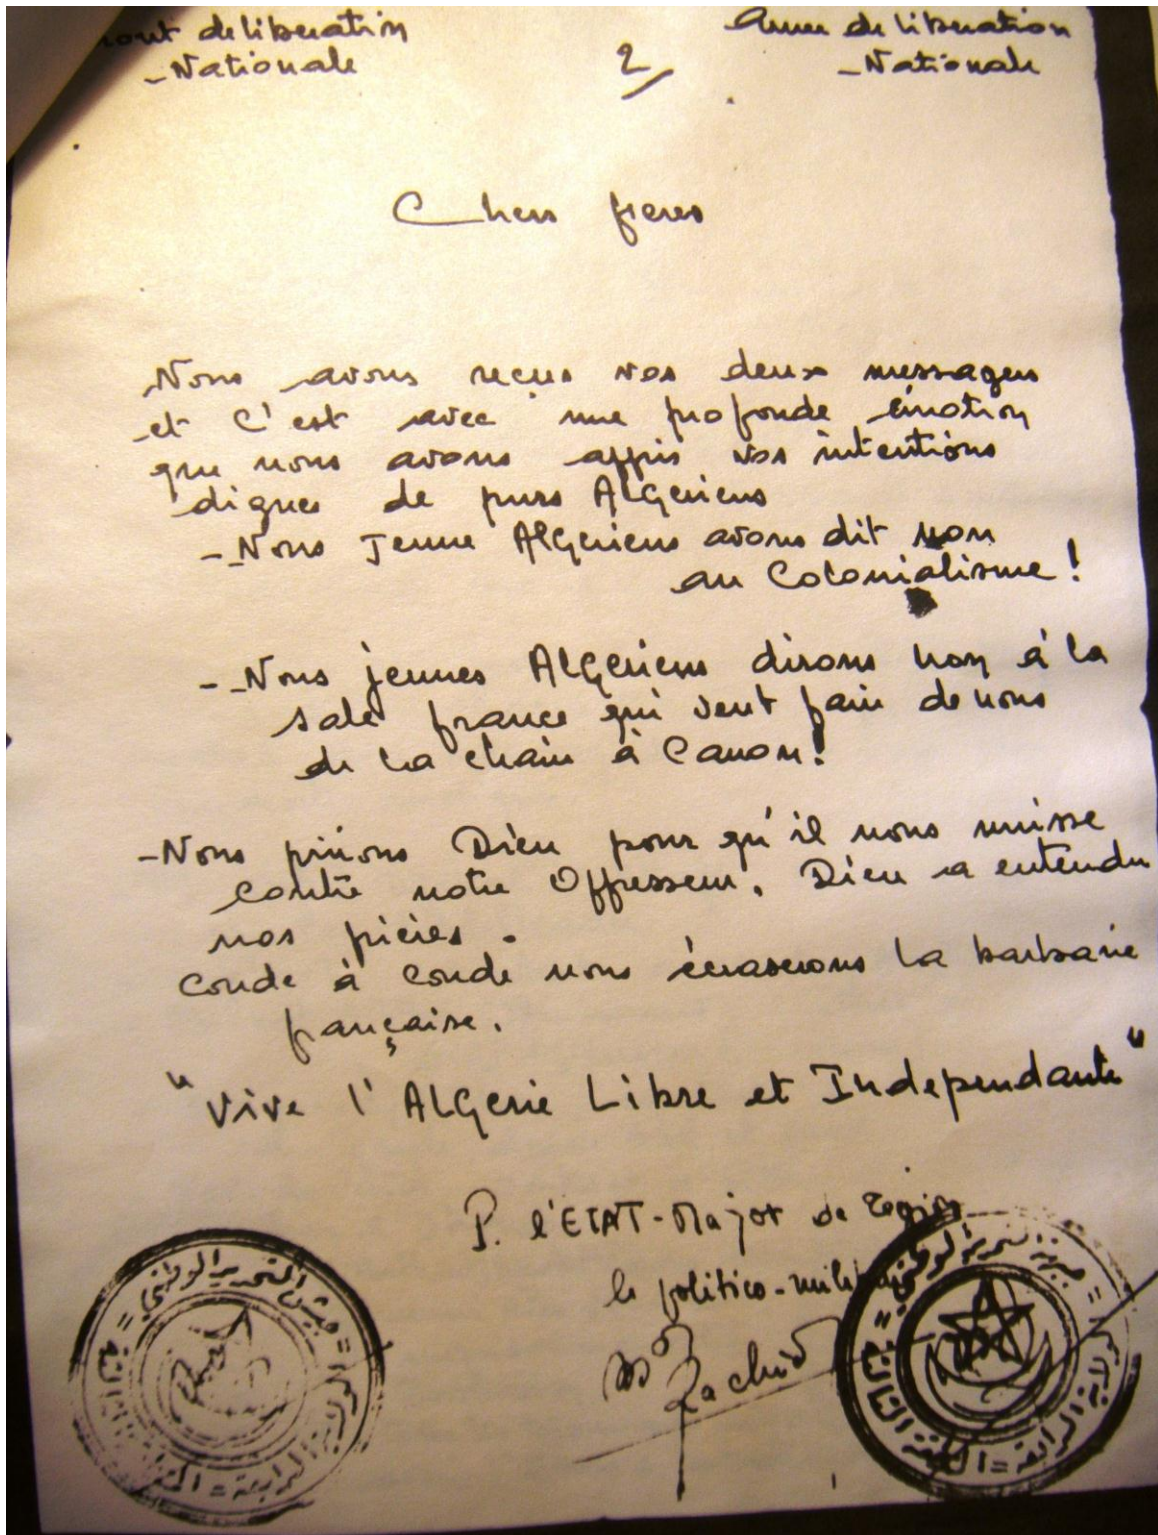 Front de liberation
Nationale
2/
Armee de liberation
Nationale
Chers freres
Nous avons reçus vos deux messages
et c'est avec une profonde émotion
que nous avons appris vos intentions
dignes de purs Algeriens
- Nous Jeune Algeriens avons dit non
au Colonialisme !
- Nous jeunes Algeriens dirons non à la
sale france qui veut faire de nous
de la chair à Canon !
- Nous prions Dieu pour qu'il nous unisse
contre notre Oppresseur. Dieu a entendu
nos prières.
Coude à Coude nous écraserons la barbarie
française.
"Vive l'Algerie Libre et Independante"
P. l'ETAT-Major de Region
le politico-militaire
Rachid
جيش التحرير الوطني = الولاية الرابعة =
جبهة التحرير الوطني = الولاية الرابعة = المنطقة الثالثة =